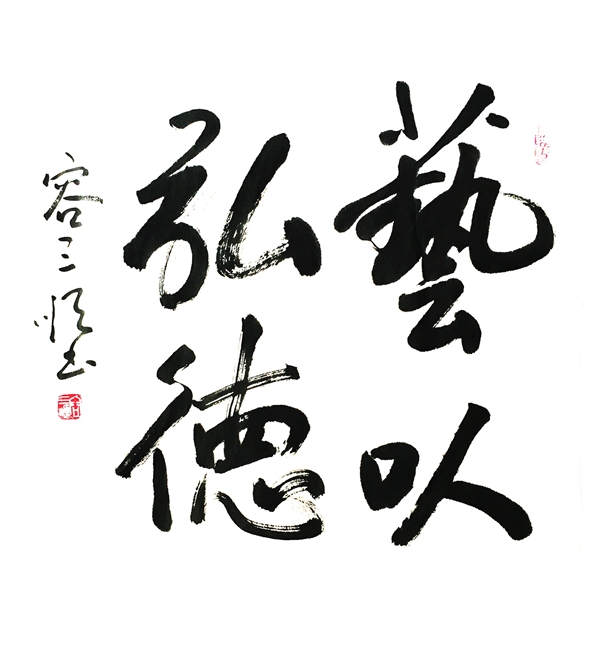 藝以
弘德
容三书